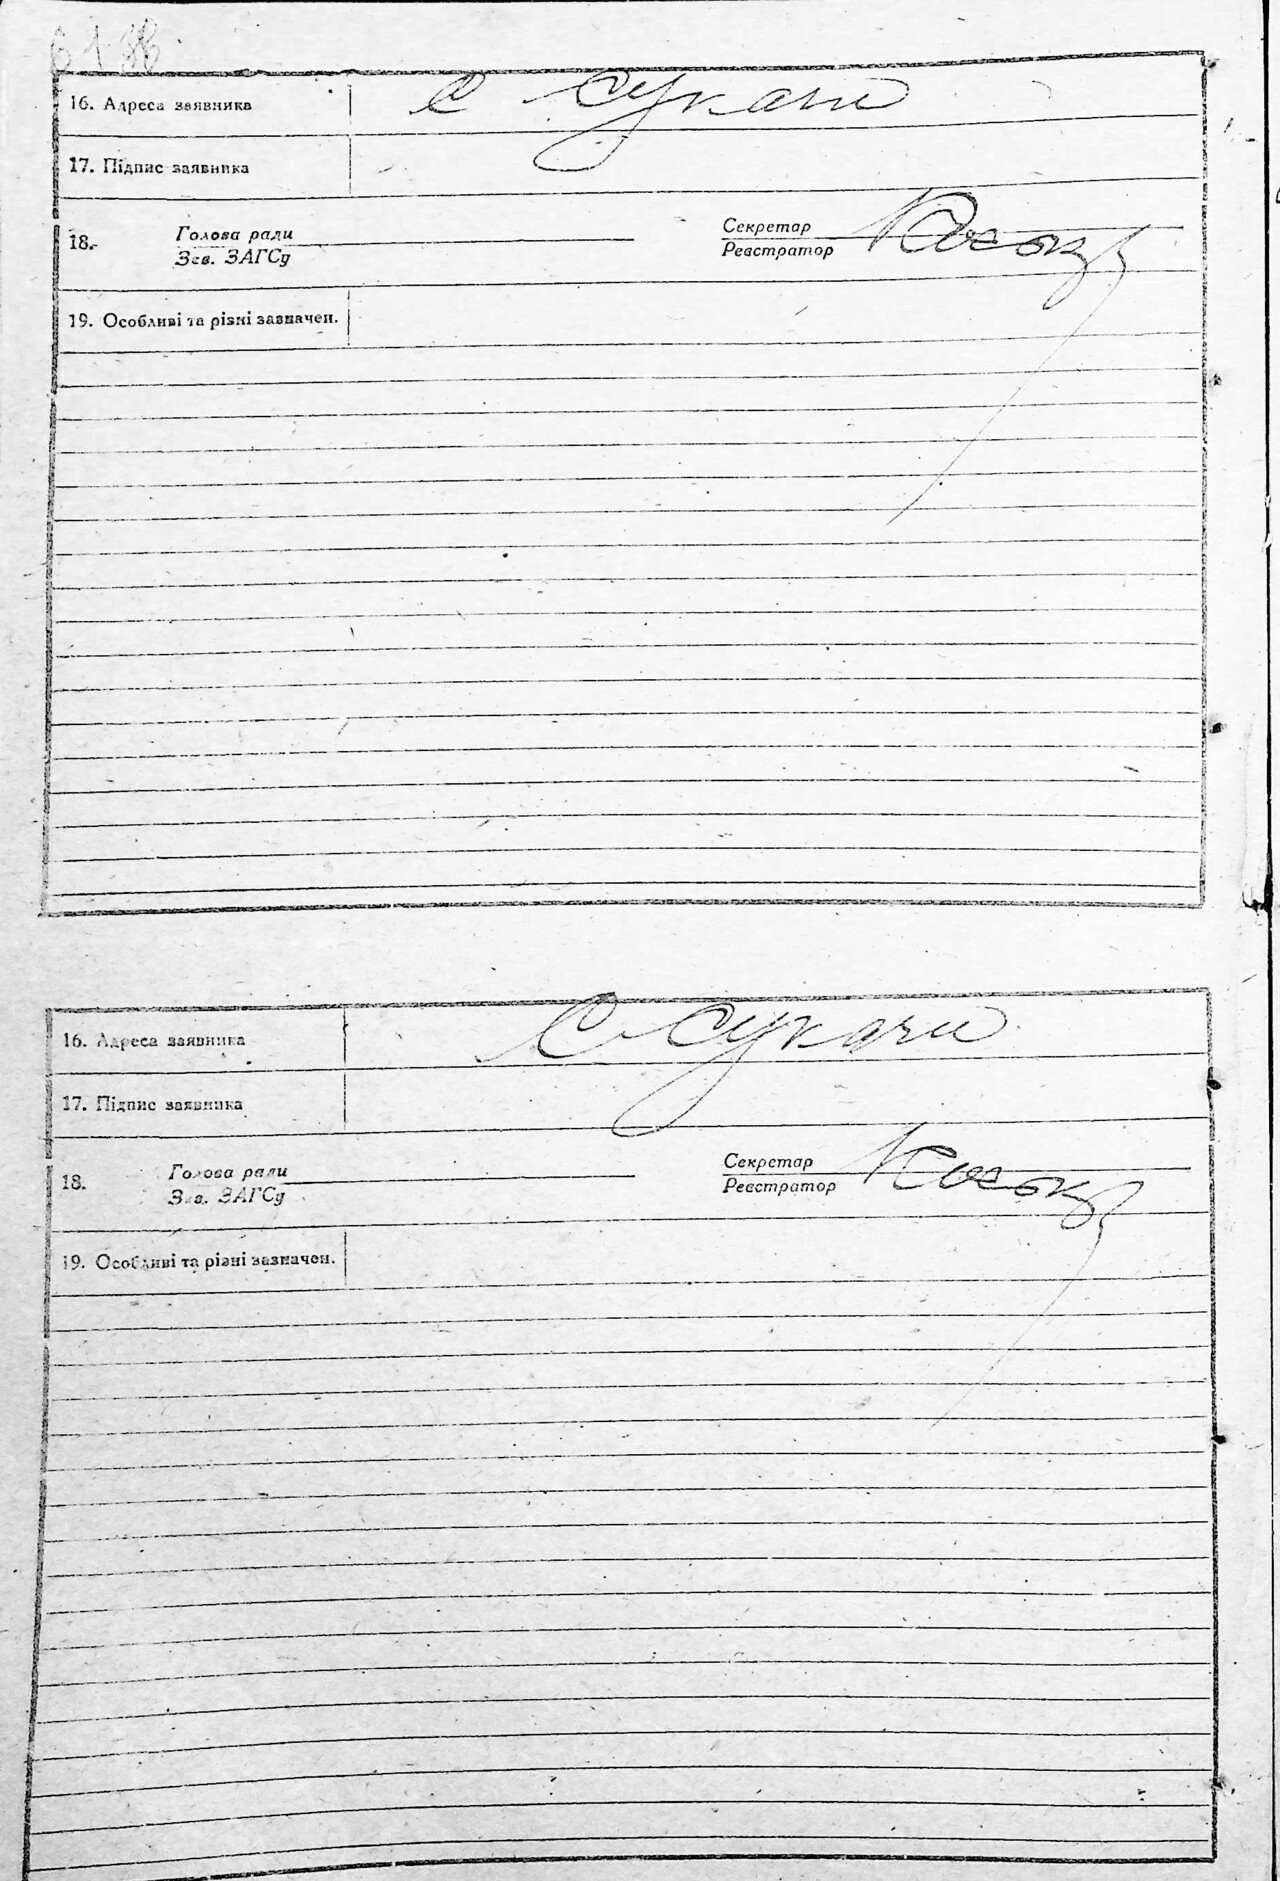 16. Адреса заявника с Сукачи
17. Підпис заявника
18. Голова ради Секретар
Зав. ЗАГСу Реєстратор
19. Особливі та різні зазначен.
16. Адреса заявника С Сукачи
17. Підпис заявника
18. Голова ради Секретар
Зав. ЗАГСу Реєстратор
19. Особливі та різні зазначен.